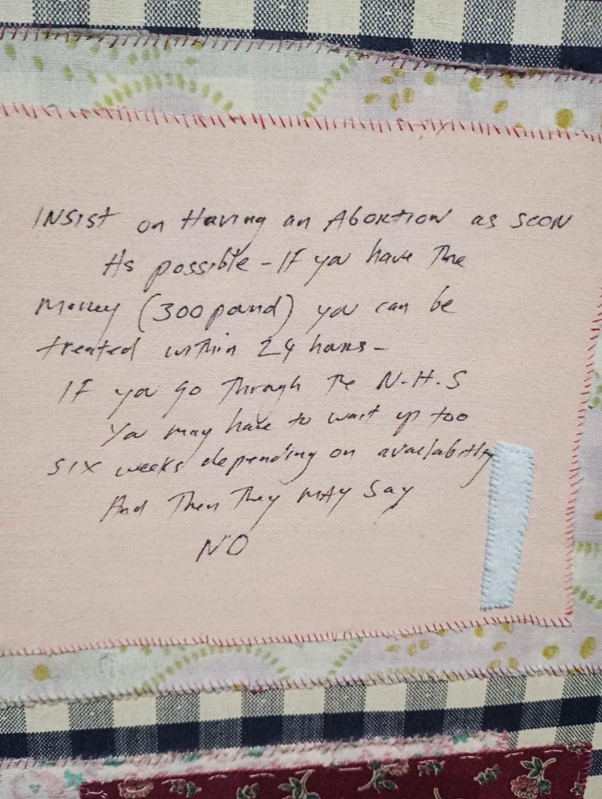 INSIST on Having an Abortion as soon
As possible - If you have The
Money (300 pound) you can be
treated within 24 hours -
If you go Through The N.H.S
You may have to wait up too
SIX weeks depending on availability
And Then They MAY Say
NO